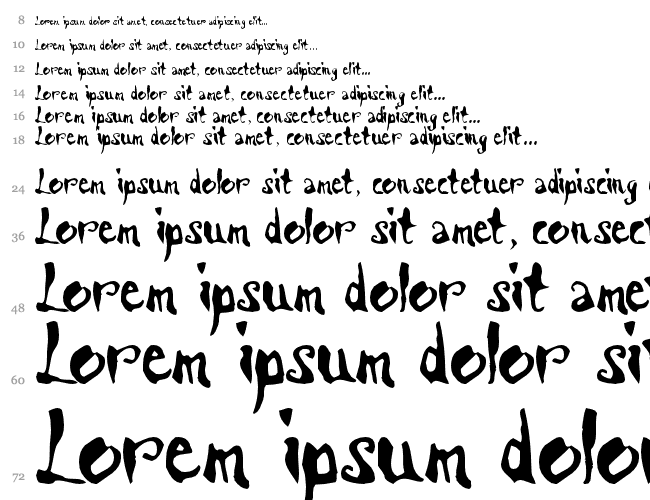 8 Lorem ipsum dolor sit amet, consectetuer adipiscing elit...
10 Lorem ipsum dolor sit amet, consectetuer adipiscing elit...
12 Lorem ipsum dolor sit amet, consectetuer adipiscing elit...
14 Lorem ipsum dolor sit amet, consectetuer adipiscing elit...
16 Lorem ipsum dolor sit amet, consectetuer adipiscing elit...
18 Lorem ipsum dolor sit amet, consectetuer adipiscing elit...
24 Lorem ipsum dolor sit amet, consectetuer adipiscing
36 Lorem ipsum dolor sit amet, consect
48 Lorem ipsum dolor sit ame
60 Lorem ipsum dolor si
72 Lorem ipsum dolo